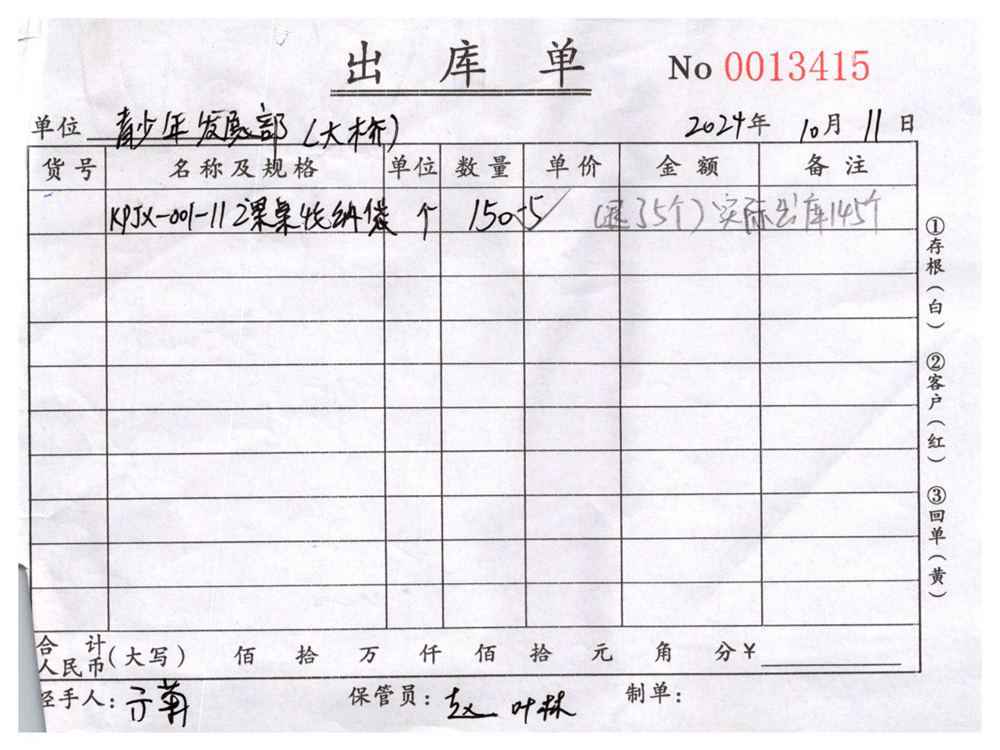 出库单 No 0013415
单位 青少年发展部(大桥) 2024年 10月 11日
货号 名称及规格 单位 数量 单价 金额 备注
KPJX-001-112课桌收纳袋 个 150-5 (退了5个)实际出库145个
合计人民币(大写) 佰 拾 万 仟 佰 拾 元 角 分¥
经手人: 保管员: 叶林 制单:
①存根(白) ②客户(红) ③回单(黄)